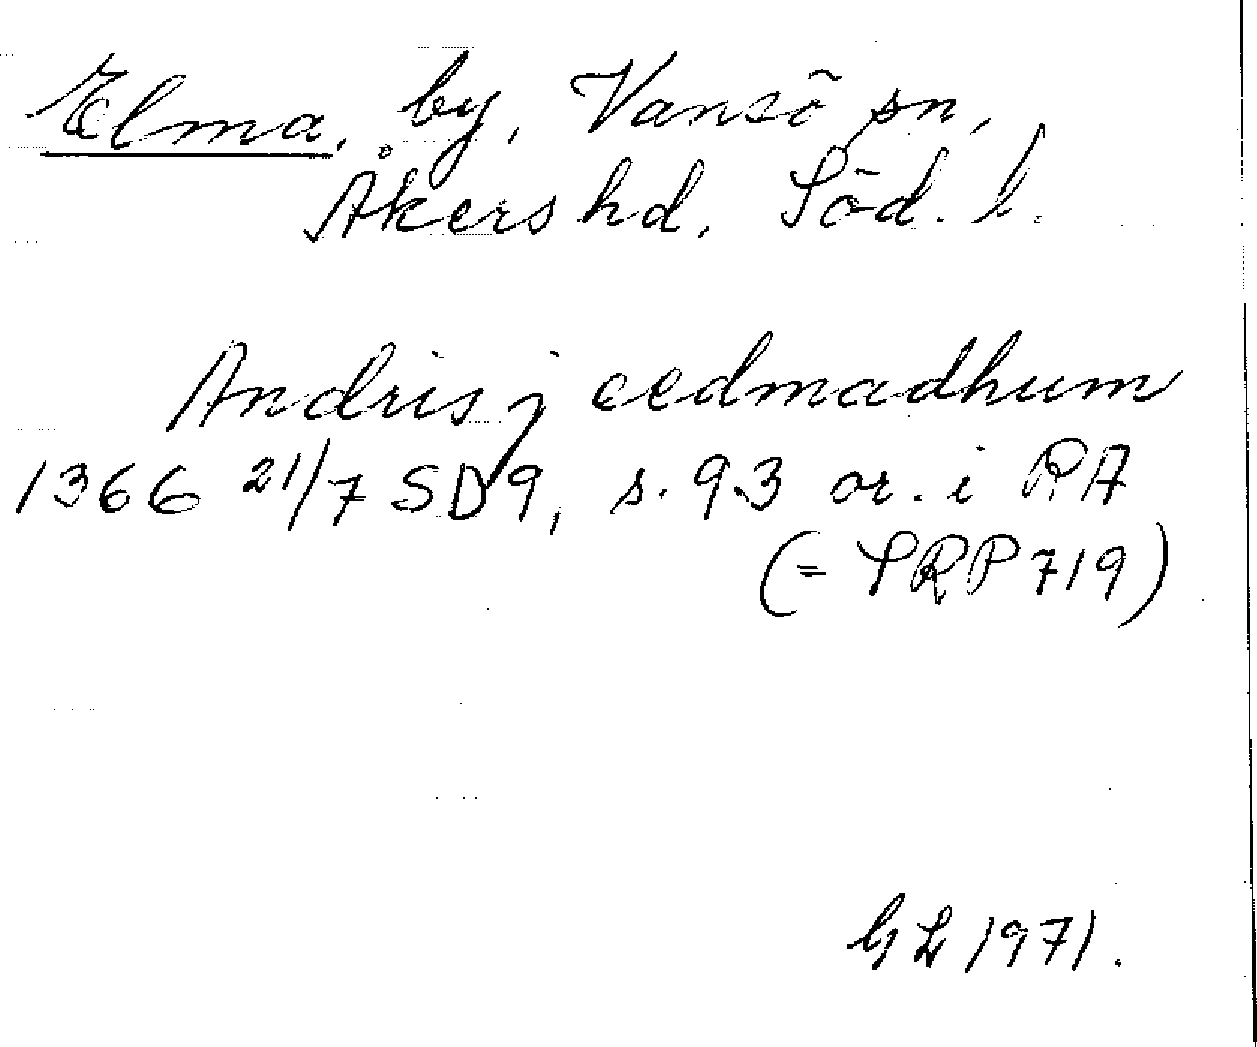 Elma. by, Vansö sn,
Åkers hd, Söd. l.
Andris j eedmadhum
1366 21/7 SD9, s. 93 or. i RA
(= SRP 719)
GL 1971.